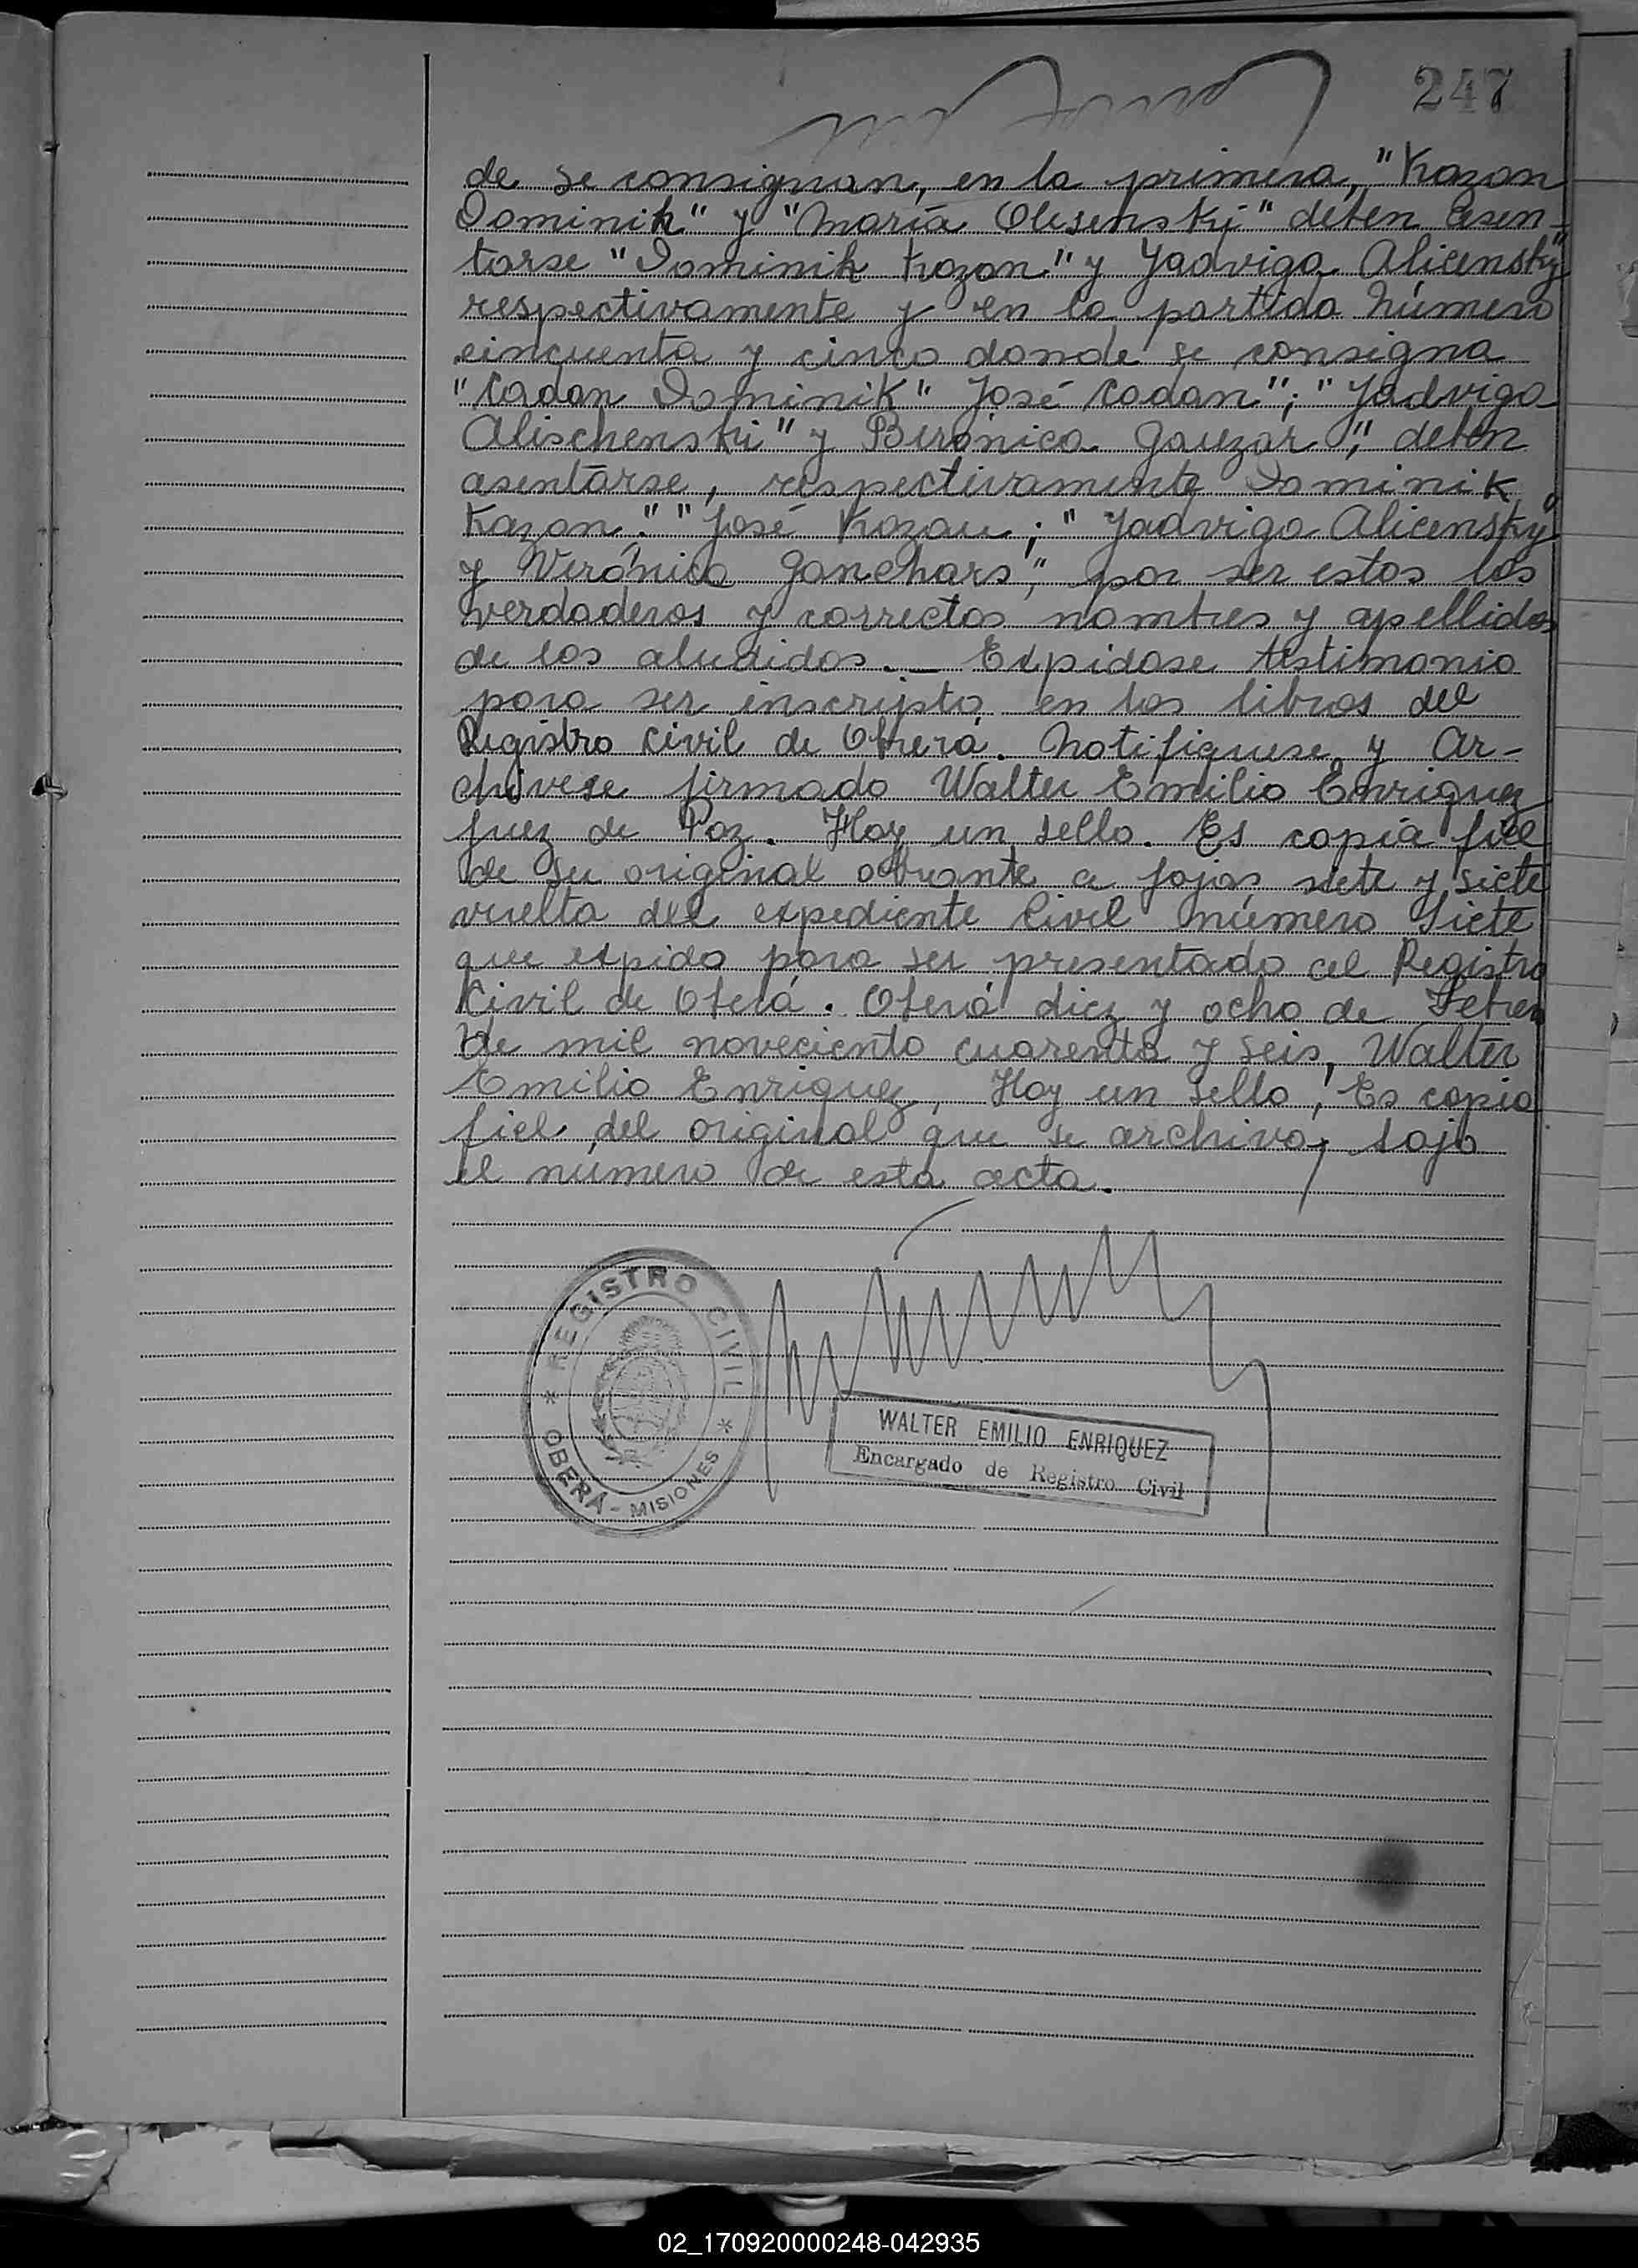 247
de se consignan, en la primera, "Kozon
Dominik" y "María Olisenski" deben asen-
tarse "Dominik Kozon" y Yadviga Alicensky"
respectivamente y en la partida número
cincuenta y cinco donde se consigna
"Cadan Dominik" José Cadan"; "Yadviga
Alischenski" y Berónica Gauzar", deben
asentarse, respectivamente Dominik
Kozon." "José Kozon; "Yadviga Alicensky"
y Verónica Gonchars", por ser estos los
verdaderos y correctos nombres y apellidos
de los aludidos. — Expidase testimonio
para ser inscripto en los libros del
Registro Civil de Oberá. Notifiquese y Ar-
chivese firmado Walter Emilio Enriquez
Juez de Paz. Hay un sello. Es copia fiel
de su original obrante a fojas siete y siete
vuelta del expediente Civil número siete
que expido para ser presentado al Registro
Civil de Oberá. Oberá diez y ocho de Febrero
de mil noveciento cuarenta y seis, Walter
Emilio Enriquez, Hay un sello, Es copia
fiel del original que se archiva, bajo
el número de esta acta.
REGISTRO CIVIL
OBERÁ - MISIONES
WALTER EMILIO ENRIQUEZ
Encargado de Registro Civil
02_170920000248-042935